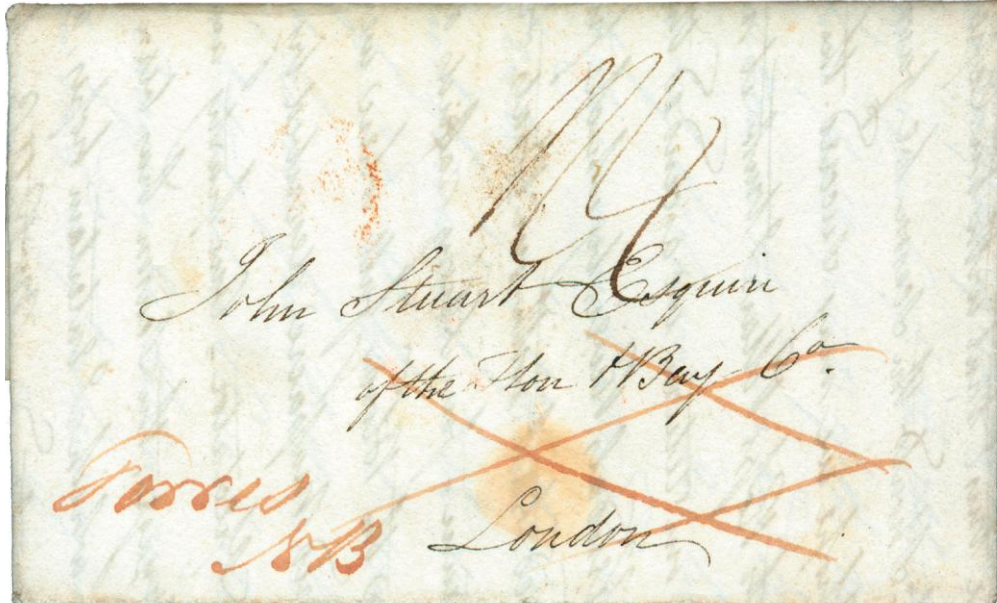 John Stuart Esquire
of the Hon HBay Co.
London
Forres
NB